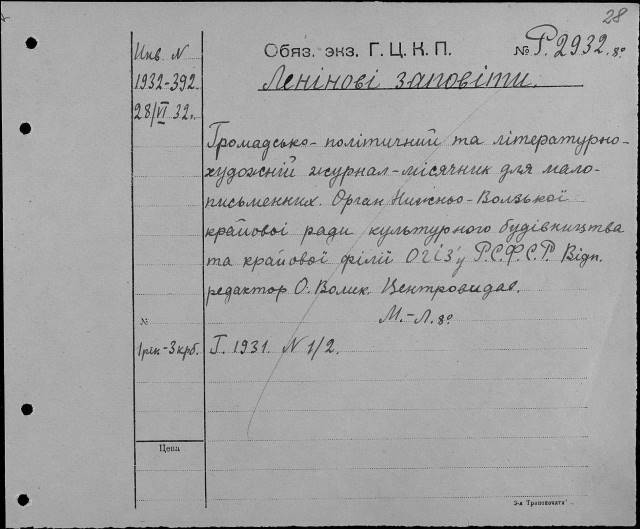 28
Инв. N
1932-392.
28/VI 32 г.
Обяз. экз. Г. Ц. К. П.
№ Р. 2932. 8°
Ленінові заповіти.
Громадсько-політичний та літературно-
художній журнал-місячник для мало-
письменних. Орган Нижньо-Волзької
крайової ради культурного будівництва
та крайової філії ОГІЗ'у Р.С.Ф.С.Р. Відп.
редактор О. Волик. Центровидав.
М.-Л. 8°
№
1 рік - 3 крб.
I. 1931. N 1/2.
Цена
3-я Транспечати